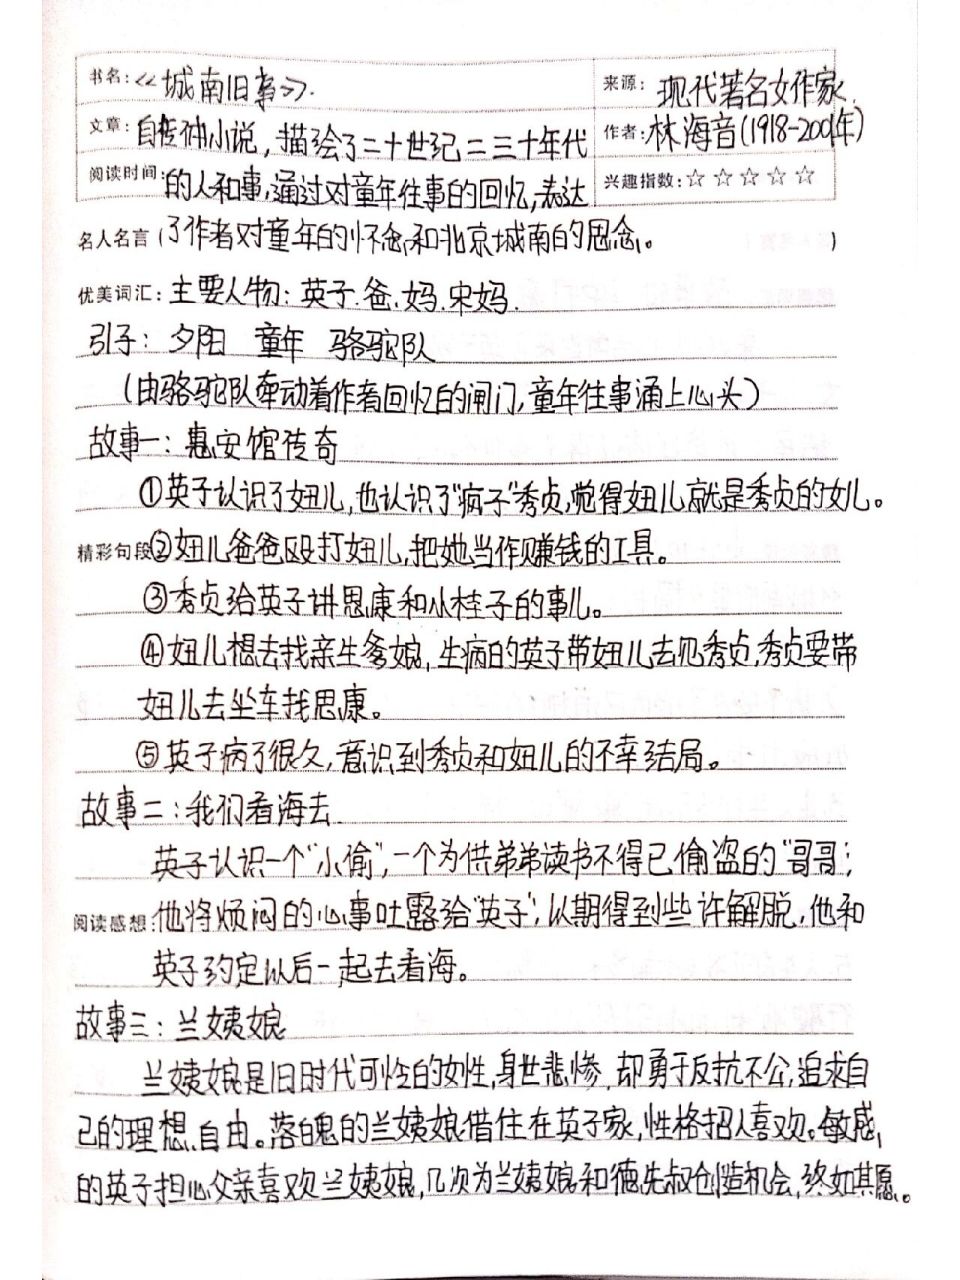 书名:《城南旧事》. 来源: 现代著名女作家.
文章: 自传体小说，描绘了二十世纪二三十年代 作者: 林海音(1918-2001年)
阅读时间: 的人和事,通过对童年往事的回忆,表达 兴趣指数:☆☆☆☆☆
名人名言 (了作者对童年的怀念和北京城南的思念。 )
优美词汇: 主要人物: 英子.爸.妈.宋妈.
引子: 夕阳 童年 骆驼队
(由骆驼队牵动着作者回忆的闸门,童年往事涌上心头)
故事一: 惠安馆传奇
①英子认识了妞儿,也认识了"疯子"秀贞,觉得妞儿就是秀贞的女儿。
精彩句段②妞儿爸爸殴打妞儿,把她当作赚钱的工具。
③秀贞给英子讲思康和小桂子的事儿。
④妞儿想去找亲生爹娘,生病的英子带妞儿去见秀贞,秀贞要带
妞儿去坐车找思康。
⑤英子病了很久,意识到秀贞和妞儿的不幸结局。
故事二:我们看海去.
英子认识一个"小偷",一个为供弟弟读书不得已偷盗的"哥哥;
阅读感想:他将烦闷的心事吐露给"英子",以期得到些许解脱,他和
英子约定以后一起去看海。
故事三: 兰姨娘
兰姨娘是旧时代可怜的女性,身世悲惨,却勇于反抗不公,追求自
己的理想、自由。落魄的兰姨娘借住在英子家,性格招人喜欢。敏感,
的英子担心父亲喜欢兰姨娘,几次为兰姨娘和德先叔创造机会,终如其愿。